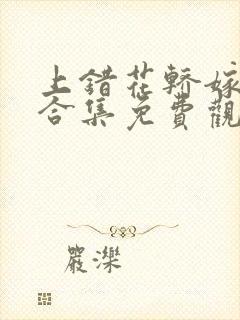 上錯花轎嫁
合集免費觀
嚴濼